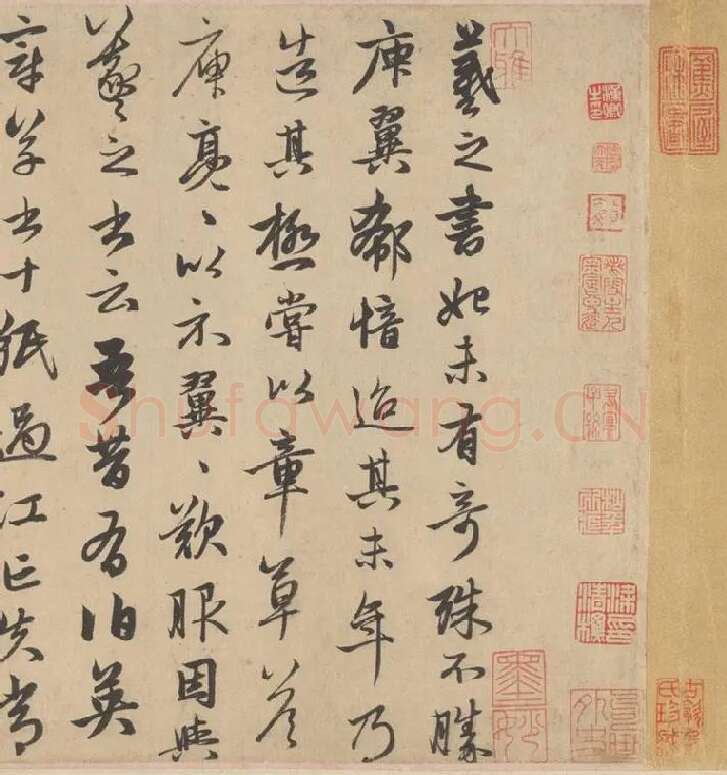 羲之書始未有奇殊不勝
庾翼郗愔迨其末年乃
造其極嘗以章草答
庾亮〻以示翼〻歎服因與
羲之書云吾昔有伯英
章草書十紙過江亡失常
大雅
墨妙
Shufawang.CN